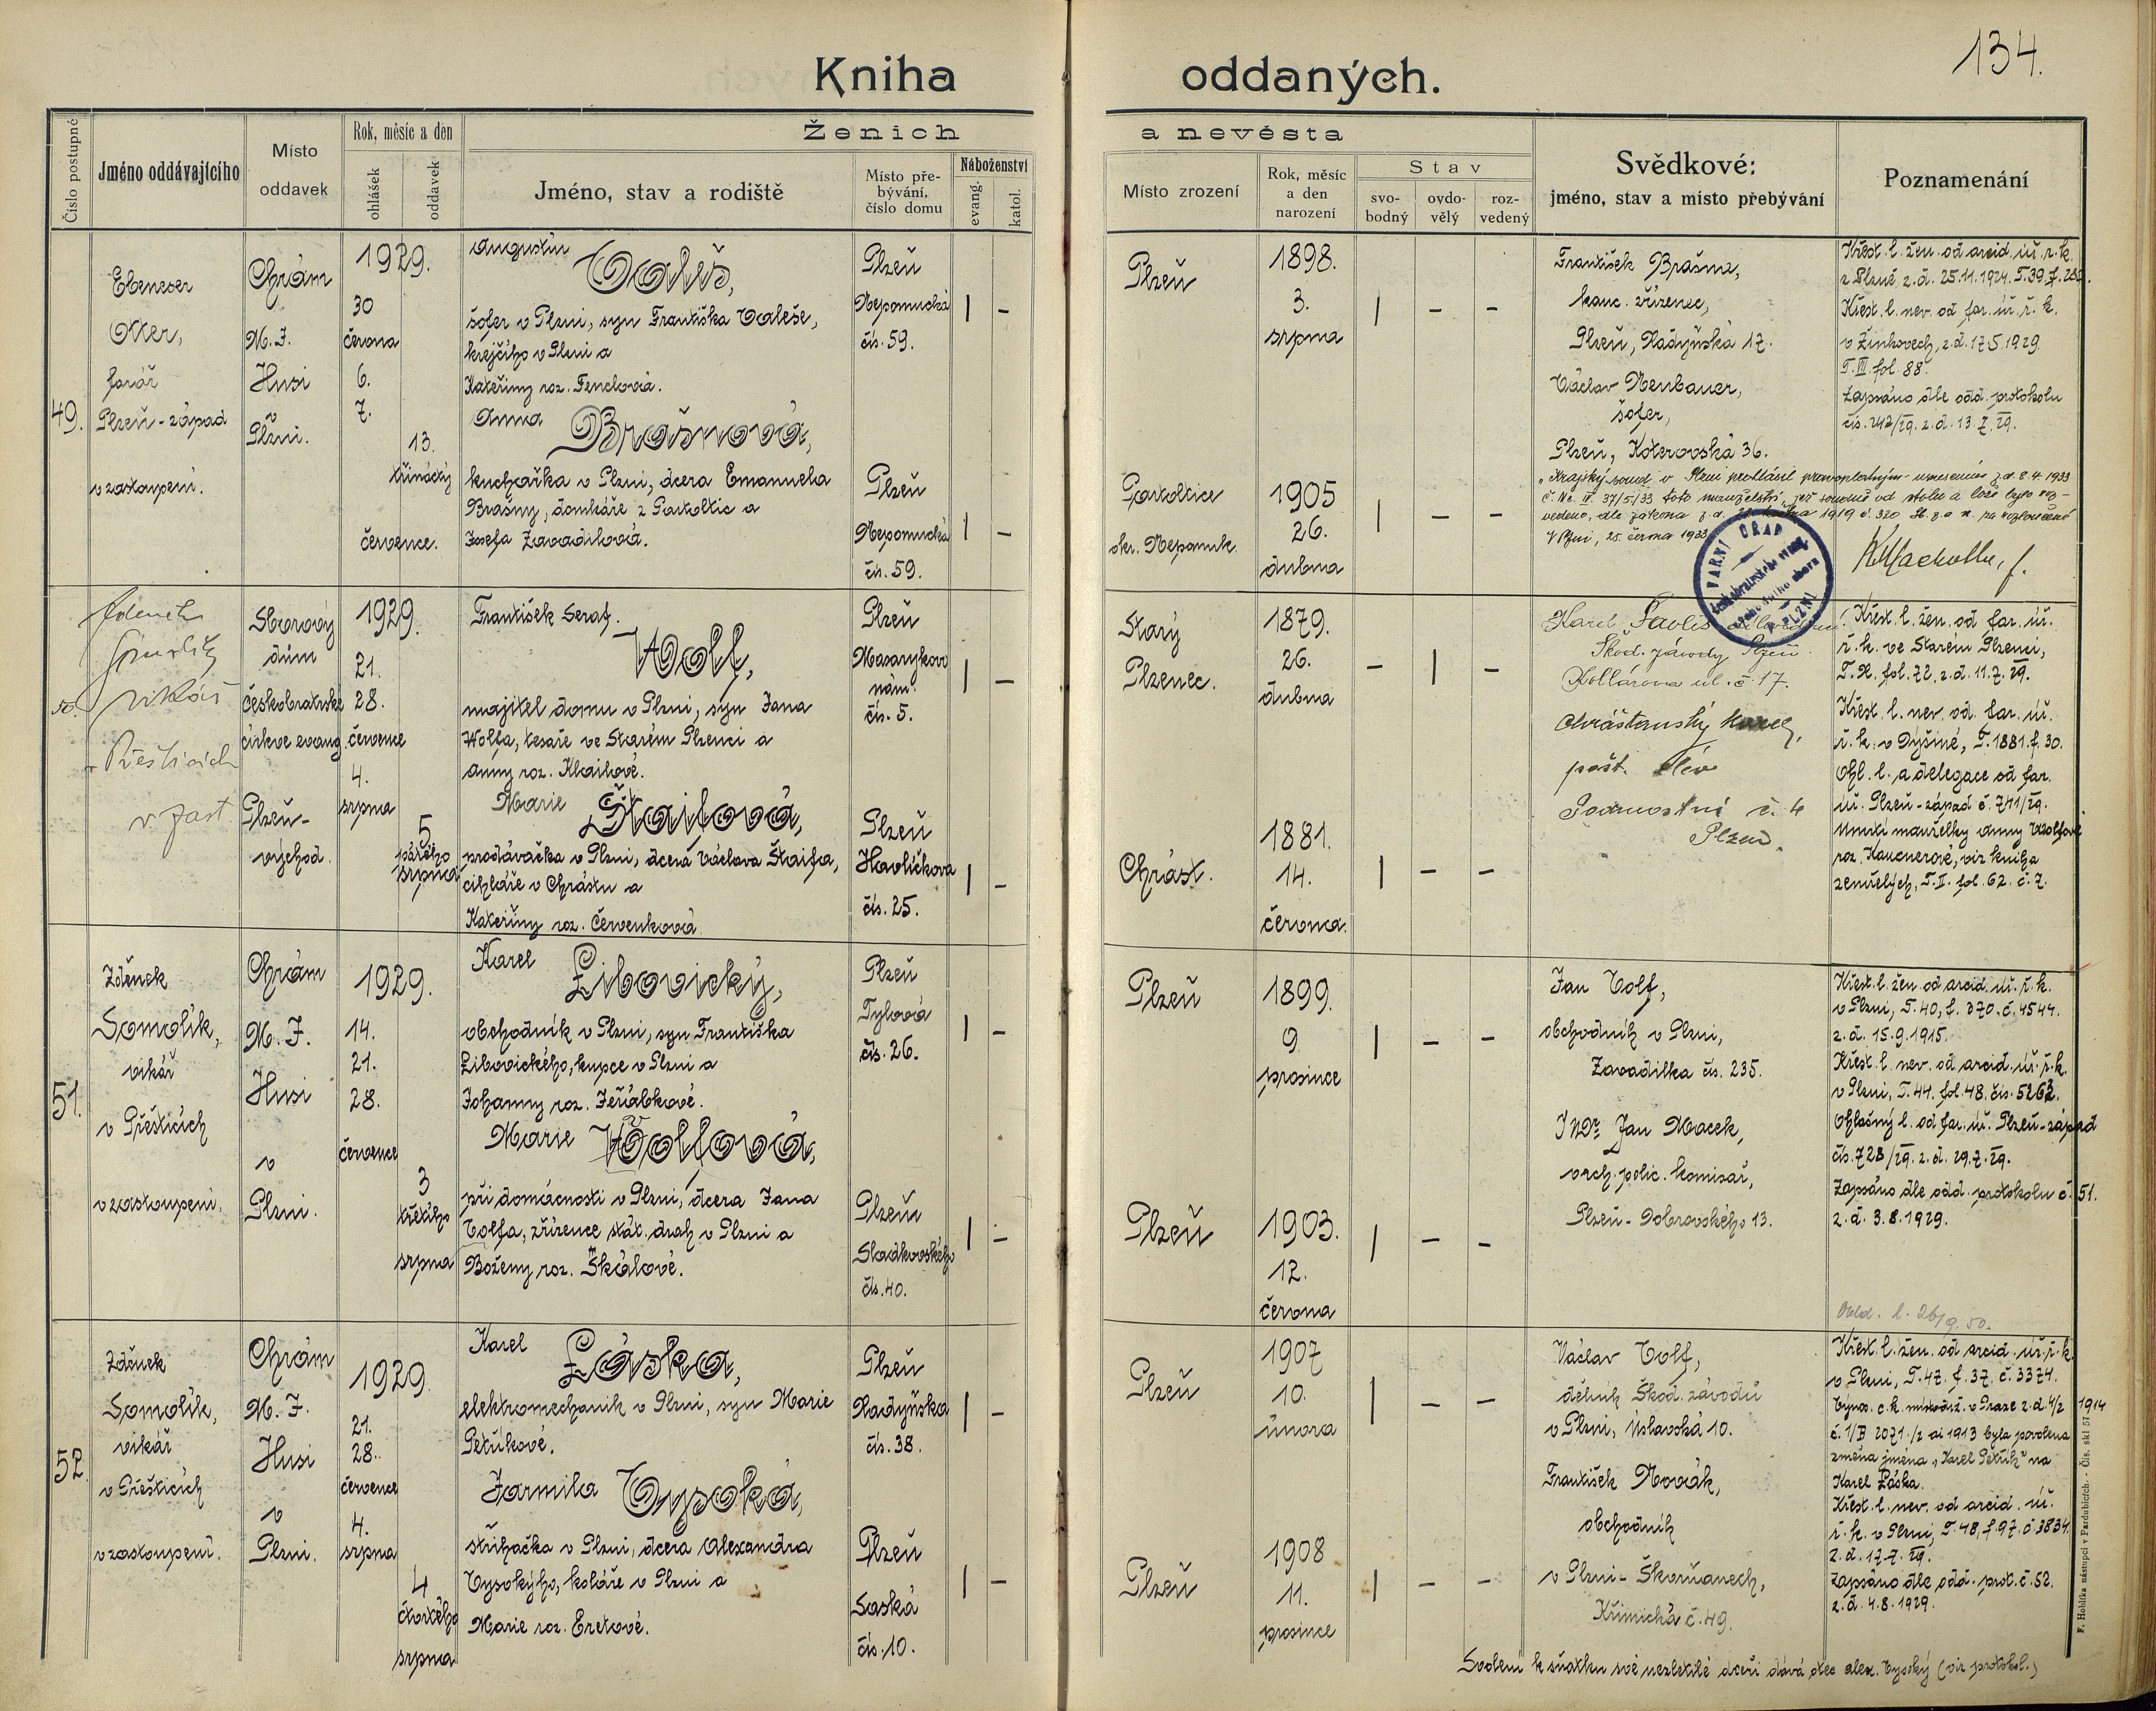 134.
Kniha oddaných.
Číslo postupné
Jméno oddávajícího
Místo oddavek
Rok, měsíc a den
ohlášek
oddavek
Ženich a nevěsta
Jméno, stav a rodiště
Místo pře-
bývání,
číslo domu
Náboženství
evang.
katol.
Místo zrození
Rok, měsíc
a den
narození
Stav
svo-
bodný
ovdo-
vělý
roz-
vedený
Svědkové:
jméno, stav a místo přebývání
Poznamenání
49.
Ebeneser
Otter,
farář
Plzeň-západ
v zastoupení.
Chrám
M. J.
Husi
v
Plzni.
1929.
30
června
6.
7.
13.
třináctý
července.
Augustin
Valeš,
šofer v Plzni, syn Františka Valeše,
krejčího v Plzni a
Kateřiny roz. Fenclová.
Anna
Brašnová,
kuchařka v Plzni, dcera Emanuela
Brašny, domkáře z Partoltic a
Josefa Zavadilová.
Plzeň
Nepomucká
čís. 59.
Plzeň
Nepomucká
čís. 59.
Plzeň
1898.
3.
srpna
Partoltice
okr. Nepomuk.
1905
26.
dubna
František Brašna,
kanc. zřízenec,
Plzeň, Radyňská 17.
Václav Neubauer,
šofer,
Plzeň, Koterovská 36.
Křest. l. žen. od arcid. úř. ř. k.
z Plzně z. d. 25.11.1924. T. 39 f. 282.
Křest. l. nev. od far. úř. ř. k.
v Žinkovech, z. d. 17.5.1929.
T. III. fol. 88.
Zapsáno dle odd. protokolu
čís. 242/29. z. d. 13.7.29.
Krajský soud v Plzni prohlásil pravoplatným usnesením z d. 8.4.1933
č. Nc. II. 37/5/33 toto manželství, jež soudně od stolu a lože bylo roz-
vedeno, dle zákona z d. 22. května 1919 č. 320 Sb. z. a n. za rozloučené
V Plzni, 28. června 1933
FARNÍ ÚŘAD
českobratrské
v PLZNI
50.
Zdeněk
Smolík
vikář
v Přešticích
v zast.
Sborový
dům
českobratrské
církve evang.
Plzeň-
východ.
1929.
21.
28.
července
4.
srpna
5
pátého
srpna
František Seraf.
Wolf,
majitel domu v Plzni, syn Jana
Wolfa, tesaře ve Starém Plzenci a
Anny roz. Klailové.
Marie
Štaifová,
prodavačka v Plzni, dcera Václava Štaifa,
cihláře v Chrástu a
Kateřiny roz. Červenková
Plzeň
Masarykovo
nám.
čís. 5.
Plzeň
Havlíčkova
čís. 25.
Starý
Plzenec.
1879.
26.
dubna
Chrást.
1881.
14.
června.
Karel
Škod. závody Plzeň.
Kollárova ul. č. 17.
Chrášťanský Karel,
pošt.
č. 4
Plzeň.
Křest. l. žen. od far. úř.
ř. k. ve Starém Plzenci,
T. X. fol. 72. z. d. 11.7.29.
Křest. l. nev. od far. úř.
ř. k. v Dýšině, T. 1881. f. 30.
Ohl. l. a delegace od far.
úř. Plzeň-západ č. 741/29.
Úmrtí manželky Anny Wolfové
roz. Kaucnerové, viz kniha
zemřelých, T. II. fol. 62. č. 7.
51.
Zdeněk
Somolík,
vikář
v Přešticích
v zastoupení.
Chrám
M. J.
Husi
v
Plzni.
1929.
14.
21.
28.
července
3
třetího
srpna
Karel
Libovický,
obchodník v Plzni, syn Františka
Libovického, kupce v Plzni a
Johanny roz. Jeřábkové.
Marie Wolfová,
při domácnosti v Plzni, dcera Jana
Volfa, zřízence stát. drah v Plzni a
Boženy roz. Škálové.
Plzeň
Tylova
čís. 26.
Plzeň
Sladkovského
čís. 40.
Plzeň
1899.
9.
prosince
Plzeň
1903.
12.
června
Jan Volf,
obchodník v Plzni,
Zavadilka čís. 235.
JUDr. Jan Macek,
vrch. polic. komisař,
Plzeň-Dobrovského 13.
Křest. l. žen. od arcid. úř. ř. k.
v Plzni, T. 40, f. 370. č. 4544.
z. d. 15.9.1915.
Křest. l. nev. od arcid. úř. ř. k.
v Plzni, T. 44. fol. 48. čís. 5262.
Ohlašný l. od far. úř. Plzeň-západ
čís. 728/29. z. d. 29.7.29.
Zapsáno dle odd. protokolu č. 51.
z. d. 3.8.1929.
Odd. l. 26/9. 50.
52
Zdeněk
Somolík,
vikář
v Přešticích
v zastoupení.
Chrám
M. J.
Husi
v
Plzni.
1929.
21.
28.
července
4.
srpna
4
čtvrtého
srpna
Karel
Láska,
elektromechanik v Plzni, syn Marie
Petříkové.
Jarmila Vysoká,
střihačka v Plzni, dcera Alexandra
Vysokýho, koláře v Plzni a
Marie roz. Eretové.
Plzeň
Radyňská
čís. 38.
Plzeň
Saská
čís. 10.
Plzeň
1907
10.
února
Plzeň
1908
11.
prosince
Václav Volf,
dělník Škod. závodů
v Plzni, Úslavská 10.
František Novák,
obchodník
v Plzni-Škvrňanech,
Křimická č. 49.
Křest. l. žen. od arcid. úř. ř. k.
v Plzni, T. 47. f. 37. č. 3374.
Výnos. c. k. místodrž. v Praze z. d. 4/2 1914
č. 1/B 2071/2 ai 1913 byla povolena
změna jména „Karel Petřík" na
Karel Láska.
Křest. l. nev. od arcid. úř.
ř. k. v Plzni, T. 48, f. 97. č. 3834.
z. d. 17.7.29.
Zapsáno dle odd. prot. č. 52.
z. d. 4.8.1929.
Svolení k sňatku své nezletilé dceři dává otec Alex. Vysoký (viz protokol.)
F. Hoblíka nástupci v Pardubicích. - Čís. skl 57